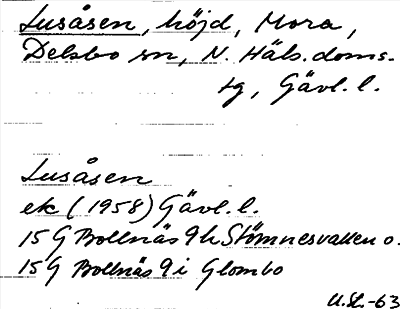 Lusåsen, höjd, Mora,
Delsbo sn, N. Häls. doms.
tg, Gävl. l.
Lusåsen
ek (1958) Gävl. l.
15 G Bollnäs 9 h Stömnesvallen o.
15 G Bollnäs 9 i Glombo
U.SL.-63